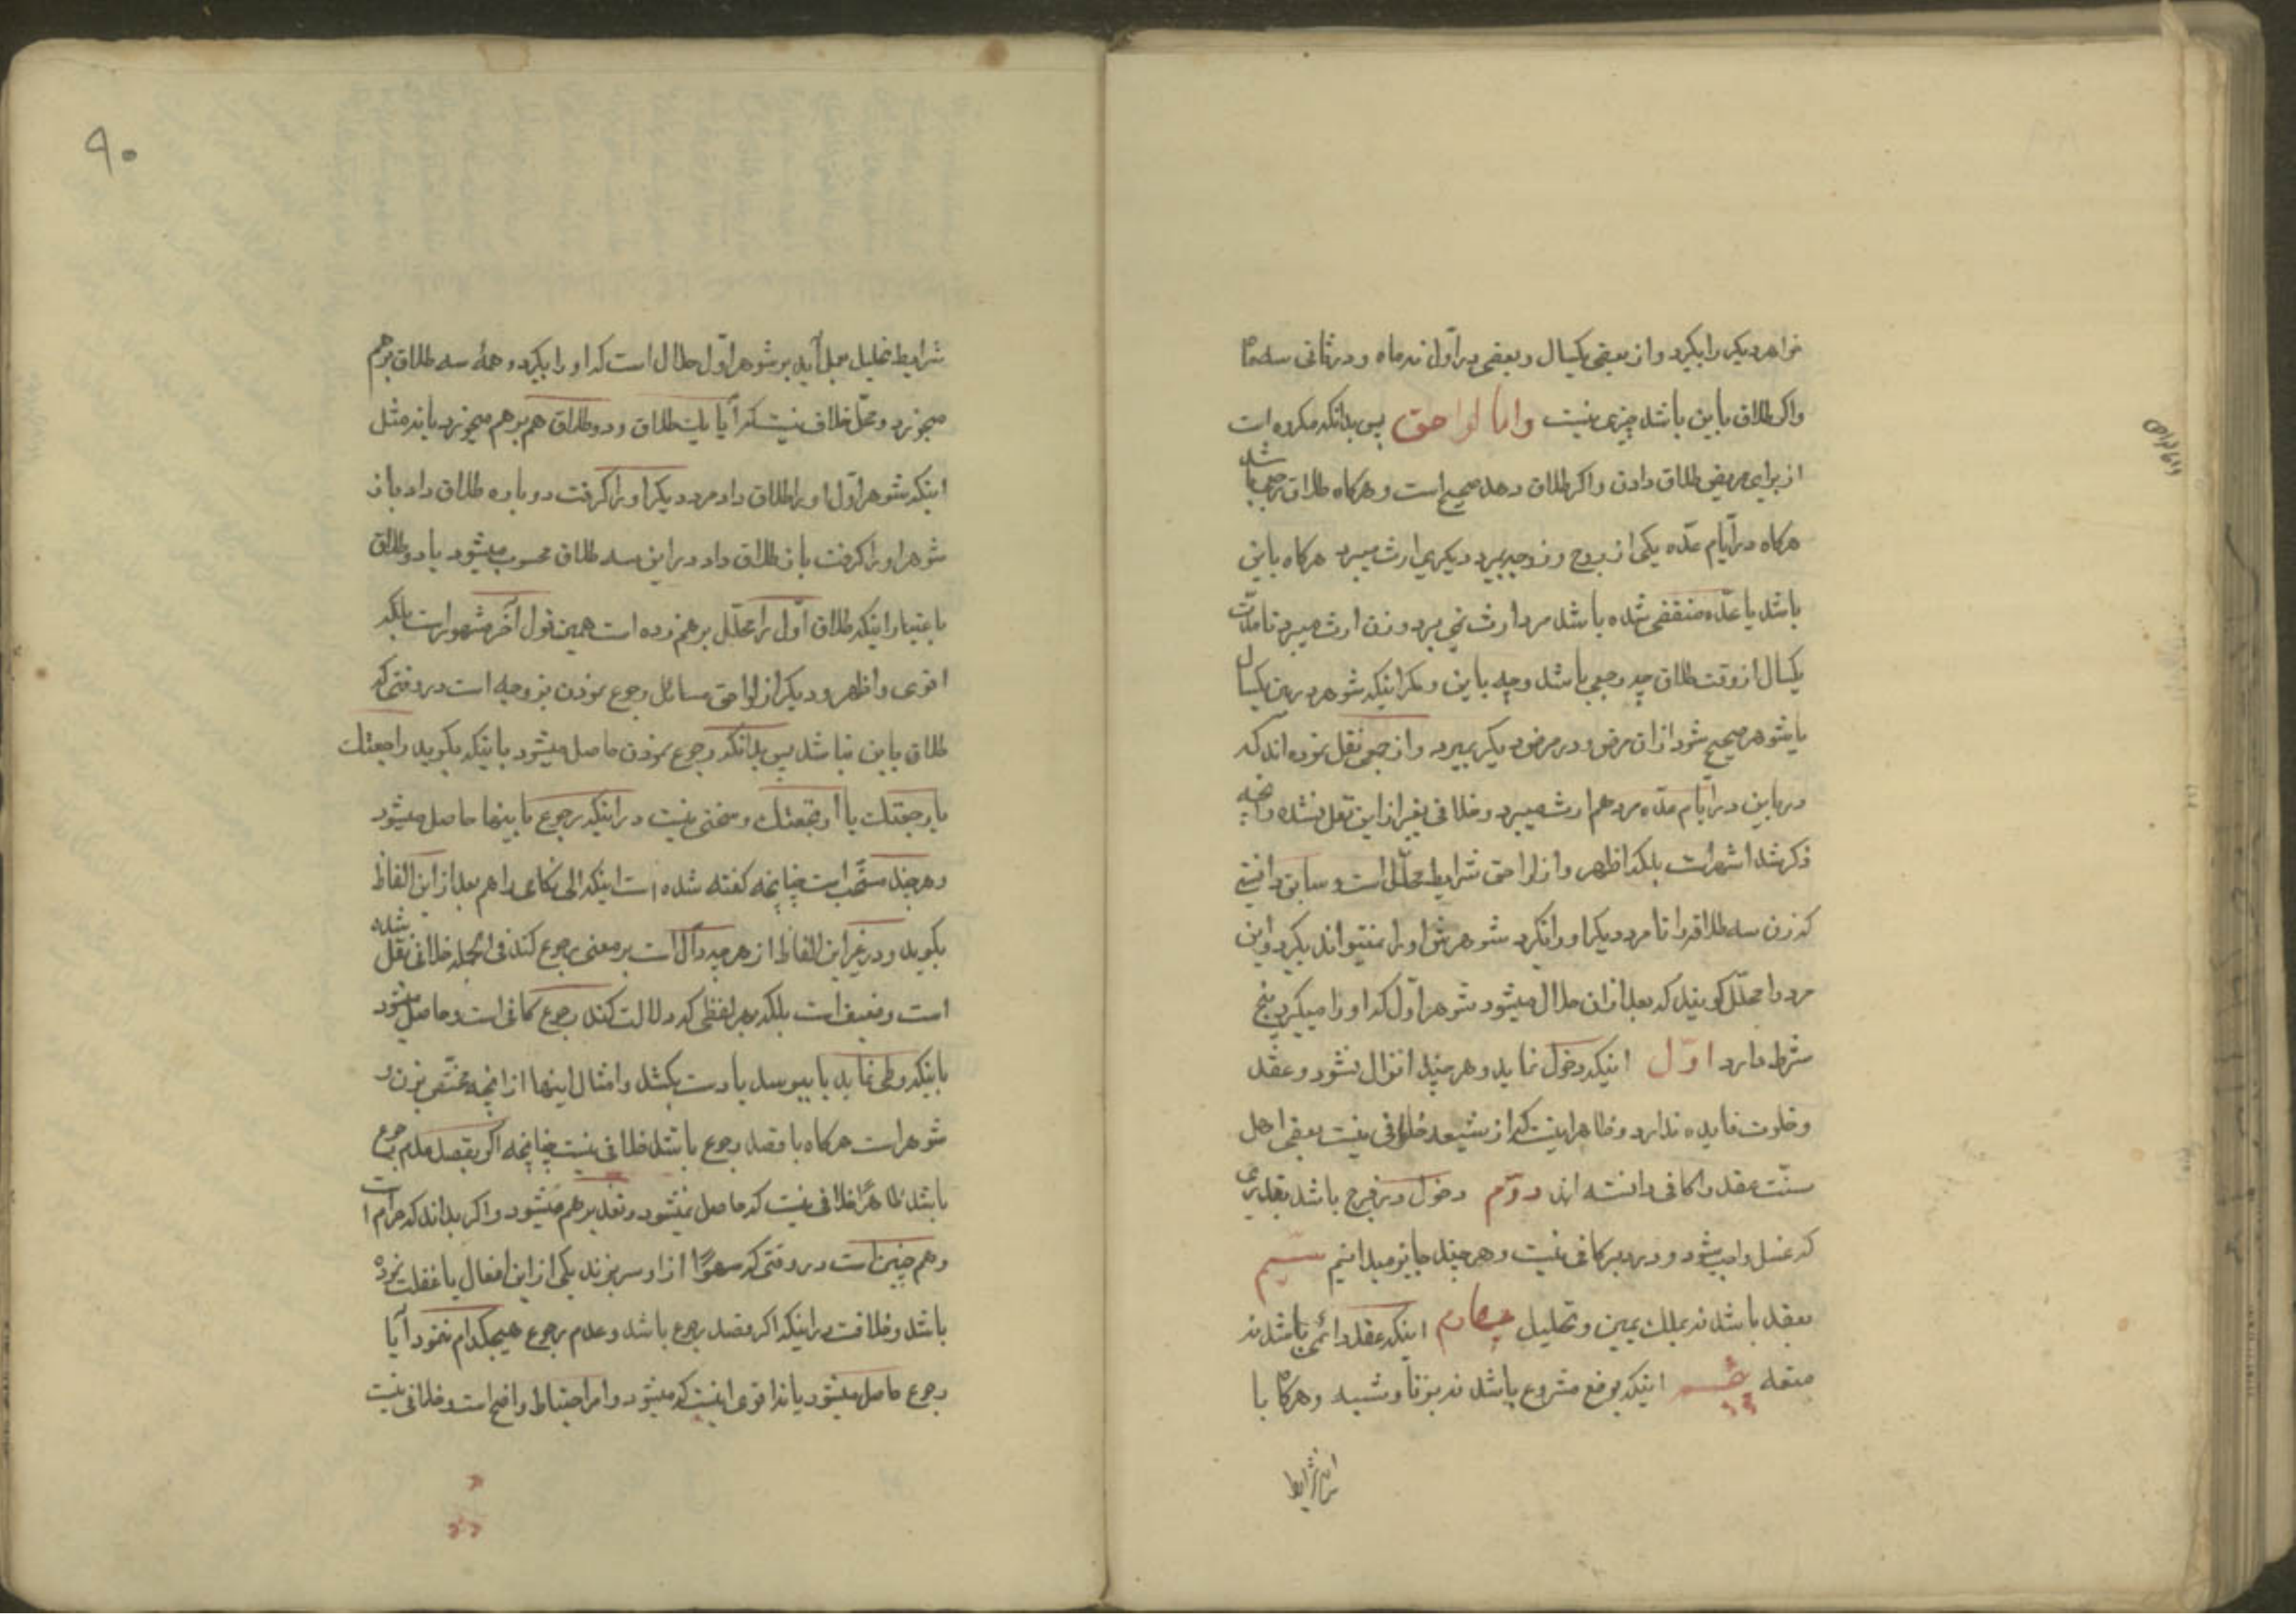 خواهر دیکر را بکیرد و از بعضی یکسال و بعضی در اول نه ماه و در ثانی سه ماه
و اکر طلاق باین باشد چیزی نیست و اما لواحق پس بدانکه مکروه است
از برای مریض طلاق دادن و اکر طلاق دهد صحیح است و هرکاه طلاق رجعی باشد
هرکاه در ایّام عدّه یکی از زوج و زوجه بمیرد دیکری ارث میبرد هرکاه باین
باشد یا عدّه منقضی شده باشد مرد ارث نمی برد و زن ارث میبرد تا مدّت
یکسال از وقت طلاق چه رجعی باشد و چه باین و مکر اینکه شوهر در یکسال
یا شوهر صحیح شود از ان مرض و در مرض دیکر بمیرد و از جمعی نقل نموده اند که
در باین در ایّام عدّه مرد هم ارث میبرد و خلافی بغیر از این نقل نشده و انچه
ذکر شد اشهر است بلکه اظهر و از لواحق شرایط محلّل است و سابق دانستی
که زن سه طلاقه را تا مرد دیکر او را نکیرد شوهرش او را نمیتواند بکیرد و این
مرد را محلّل کویند که بعد از ان حلال میشود شوهر اوّل که او را میکیرد پنج
شرط دارد اوّل اینکه دخول نماید و هر چند انزال نشود و عقد
و خلوت فایده ندارد و ظاهر اینست که از شیعه خلافی نیست بعضی اهل
سنّت عقد را کافی دانسته اند دوّم دخول در فرج باشد بقدری
که غسل واجب شود و در دبر کافی نیست و هر چند جایز میدانیم سیّم
بعقد باشد نه بملک یمین و تحلیل چهارم اینکه عقد دائمی باشد نه
متعه پنجم اینکه بوضع مشروع باشد نه بزنا و شبهه و هرکاه با
این شرایط
۹۰
شرایط تحلیل بعمل آید بر شوهر اوّل حلال است که او را بکیرد و همهٔ سه طلاق برهم
میخورد و محلّ خلاف نیست که آیا یک طلاق و دو طلاق هم برهم میخورد یا نه مثل
اینکه شوهر اوّل او را طلاق داد مرد دیکر او را کرفت دوباره طلاق داد باز
شوهر او را کرفت باز طلاق داد در این سه طلاق محسوب میشود یا دو طلاق
باعتبار اینکه طلاق اوّل را محلّل برهم زده است همین قول آخر مشهور است بلکه
اقوی و اظهر و دیکر از لواحق مسائل رجوع نمودن بزوجه است در وقتی که
طلاق باین نباشد پس بدانکه رجوع نمودن حاصل میشود باینکه بکوید راجعتک
یا رجعتک یا ارتجعتک و سخنی نیست در اینکه رجوع باینها حاصل میشود
و هر چند مستحب است چنانچه کفته شده است اینکه الی نکاحی را هم بعد از این الفاظ
بکوید و در غیر این الفاظ از هر چه دالّ است بر معنی رجوع کند فی الجمله خلافی نقل شده
است و ضعیف است بلکه بهر لفظی که دلالت کند رجوع کافی است و حاصل میشود
باینکه وطی نماید یا ببوسد یا دست بکشد و امثال اینها از انچه مختصّ بزن و
شوهر است هرکاه با قصد رجوع باشد خلافی نیست چنانچه اکر بقصد عدم رجوع
باشد ظاهراً خلافی نیست که حاصل نمیشود و عقد برهم میشود و اکر بداند که حرام است
و هم چنین است در وقتی که سهواً از او سر بزند یکی از این افعال یا غفلت نموده
باشد و خلافست در اینکه اکر قصد رجوع باشد و عدم رجوع هیچکدام ننمود آیا
رجوع حاصل میشود یا نه اقوی اینست که میشود و امر احتیاط واضح است و خلافی نیست